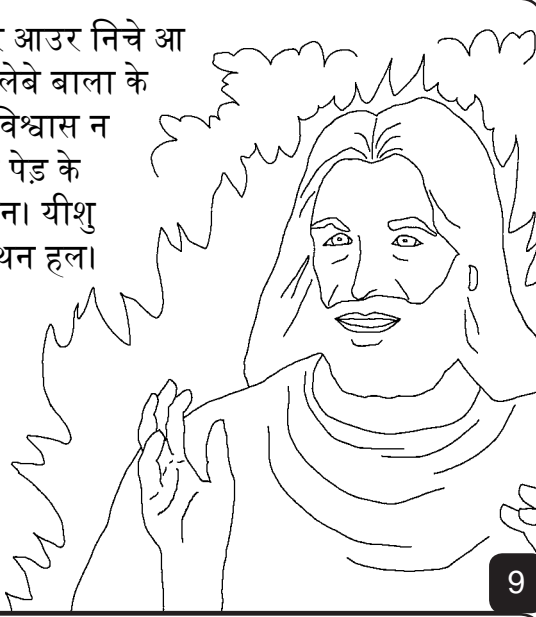 आउर निचे आ
लेबे बाला के
विश्वास न
पेड़ के
न। यीशु
थन हल।
9